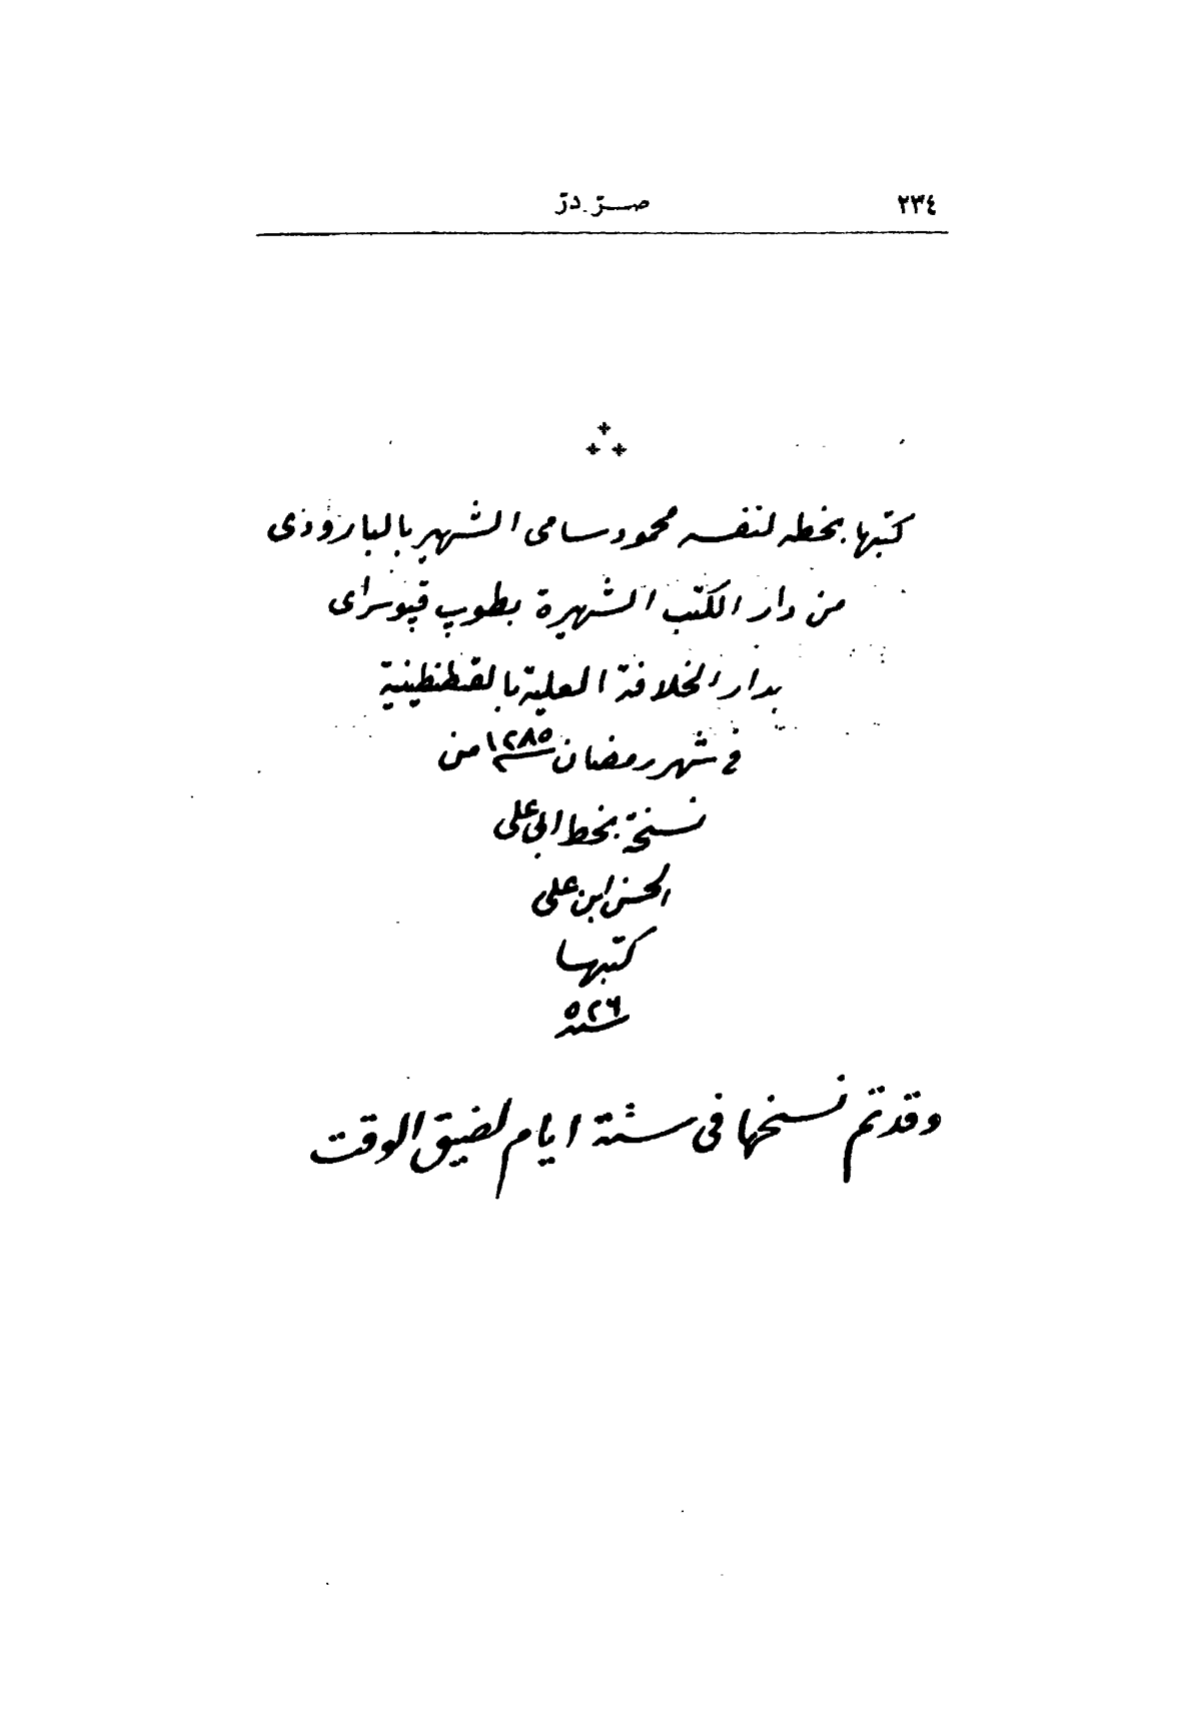 ٢٣٤ صر در
كتبها بخطه لنفسه محمود سامى الشهير بالبارودى
من دار الكتب الشهيرة بطوپ قپو سراى
بدار الخلافة العلية بالقسطنطينية
فى شهر رمضان سنة ١٢٨٥ من
نسخة بخط ابى على
الحسن ابن على
كتبها
سنة ٥٢٦
وقد تم نسخها فى ستة ايام لضيق الوقت